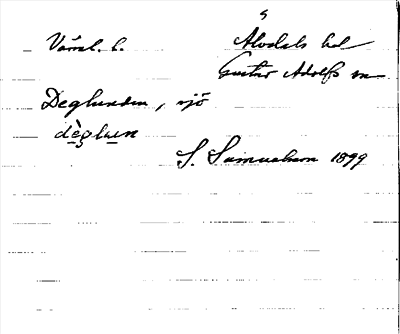 Värml. l.
Älvdals hd
Gustav Adolfs sn
Deglunden, sjö
dèglu̱n
S. Samuelsson 1899